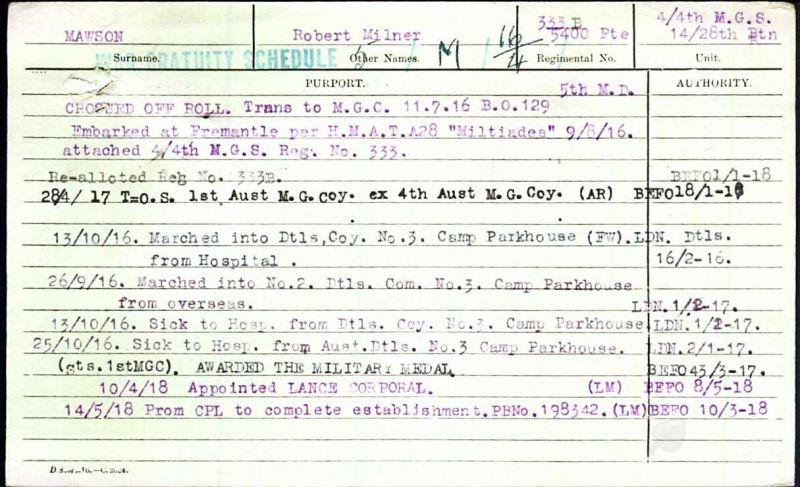 MAWSON Robert Milner 333 B 4/4th M.G.S.
5400 Pte 14/28th Btn
WAR GRATUITY SCHEDULE M 16/4
Surname. Other Names. Regimental No. Unit.
PURPORT. 5th M.D. AUTHORITY.
CROSSED OFF ROLL. Trans to M.G.C. 11.7.16 B.O.129
Embarked at Fremantle per H.M.A.T.A28 "Miltiades" 9/8/16.
attached 4/4th M.G.S. Reg. No. 333.
Re-alloted Reg No. 333B. BEFO1/1-18
284/ 17 T=O.S. 1st Aust M.G.Coy. ex 4th Aust M.G.Coy. (AR) BEFO18/1-18
13/10/16. Marched into Dtls,Coy. No.3. Camp Parkhouse (FW). LDN. Dtls.
from Hospital . 16/2-16.
26/9/16. Marched into No.2. Dtls. Com. No.3. Camp Parkhouse
from overseas. LDN.1/2-17.
13/10/16. Sick to Hosp. from Dtls. Coy. No.3. Camp Parkhouse LDN.1/2-17.
25/10/16. Sick to Hosp. from Aust.Dtls. No.3 Camp Parkhouse. LDN.2/1-17.
(sts.1stMGC). AWARDED THE MILITARY MEDAL. BEFO43/3-17.
10/4/18 Appointed LANCE CORPORAL. (LM) BEFO 8/5-18
14/5/18 Prom CPL to complete establishment.PBNo.198342.(LM) BEFO 10/3-18